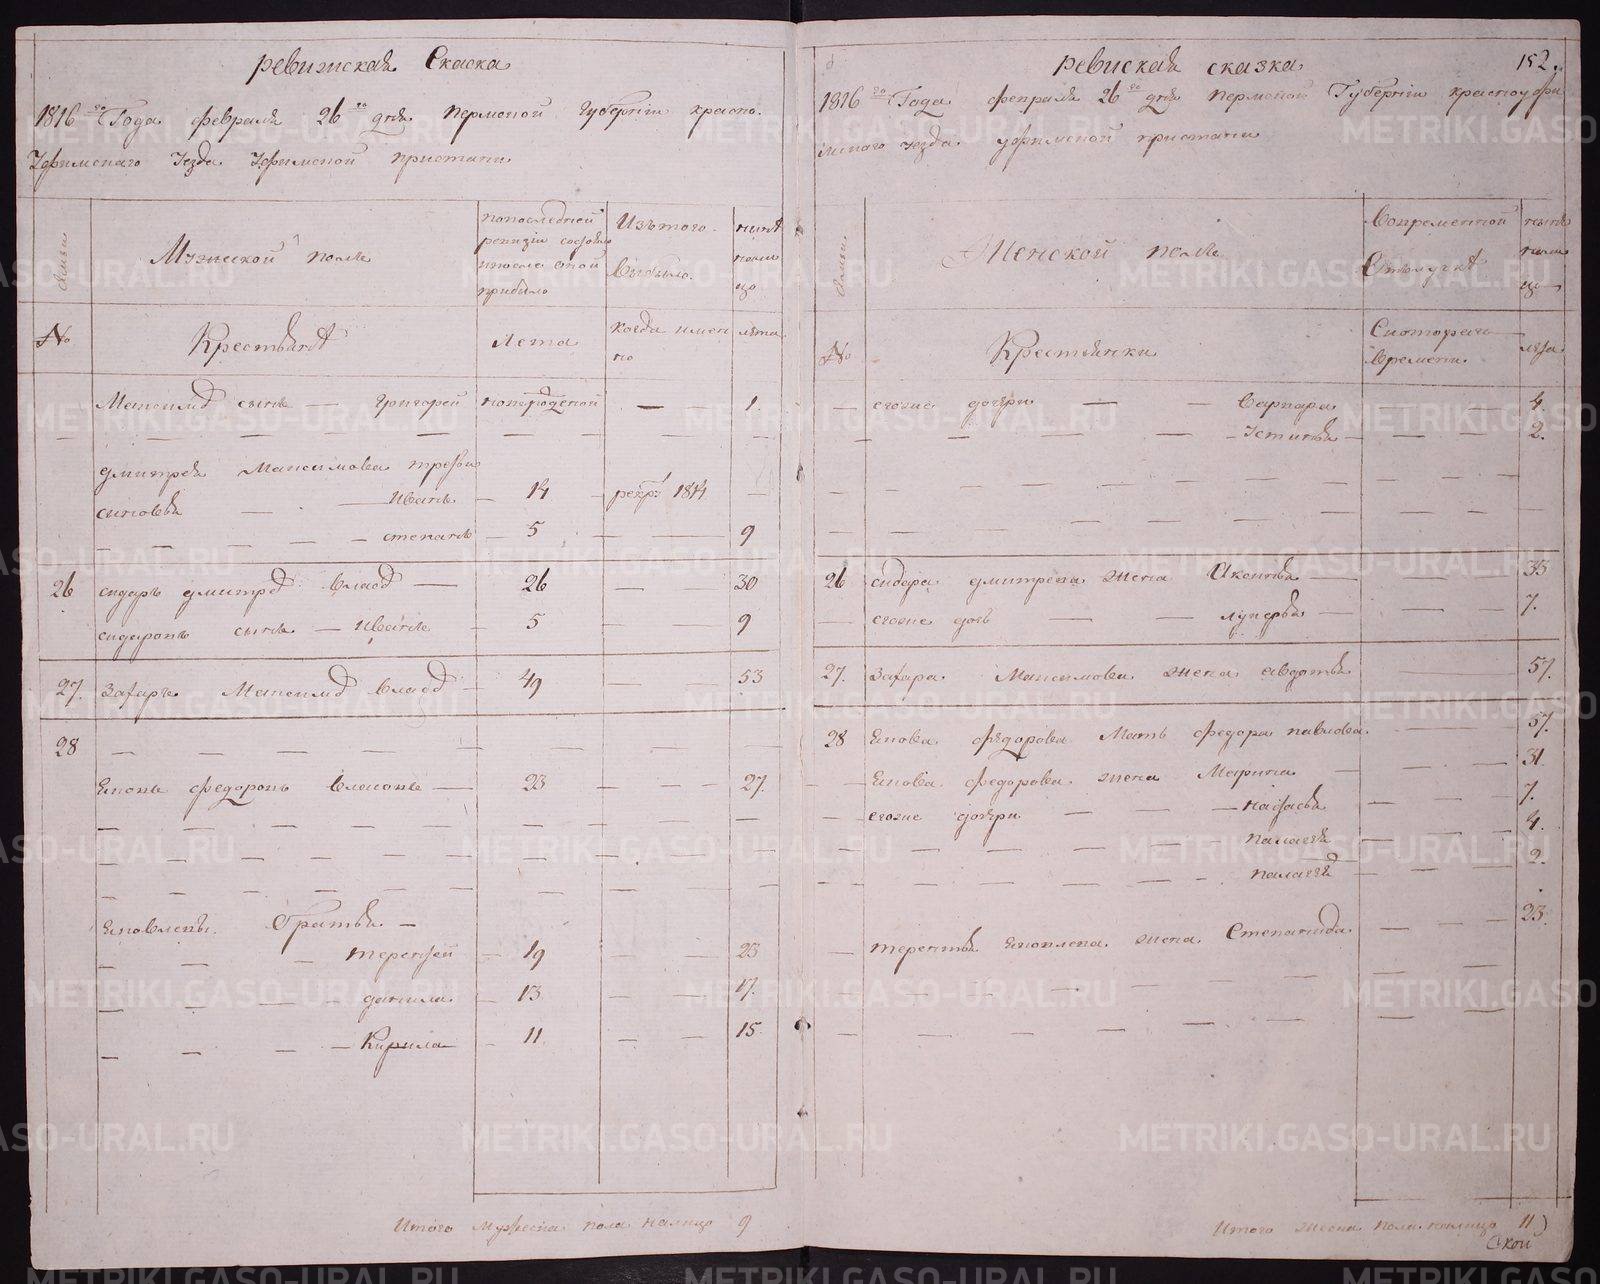 ревижская Скаска
1816 го Года февраля 26 го дня пермской губернiи красно
Уфимскаго Уезда Уфимской пристани
Семьи
Мужеской полъ
попоследней
ревизiи состояло
ипосле оной
прибыло
Изътого
Выбыло
ныне
нали
цо
№
Крестьянъ
Лета
когда имен
но
лета
Максимъ сынъ — Григорей новорожденой — 1.
дмитрея Максимова третьи
сыновья — Иванъ — 14 рекру 1814 —
степанъ — 5 — 9
26 сидаръ дмитре власо — 26 — 30
сидаровъ сынъ — Иванъ — 5 — 9
27. Захаръ Максимъ власо — 49 — 53
28
Яковъ федоровъ власовъ — 23 — 27.
Яковлевы братья —
терентей — 19 — 23
данила — 13 — 17.
Кирила — 11 — 15.
Итого Мужеска пола налицо 9
ревиская сказка
152.
1816 го Года февраля 26 го дня пермской Губернiи красноуфи
мского уезда уфимской пристани
Семьи
Женской полъ
Вовременной
Отлучке
ныне
нали
цо
№
Крестьянки
Скоторого
времени
лета
— егоже дочери — Варвара — 4.
— Устинья — 2.
26 сидора дмитрева жена — 33
— егоже дочь — Лукерья — 7.
27. Захара Максимова жена авдотья — 57.
28 Якова федорова Мать федора павлова — 57.
— Якова федорова жена Марина — 31.
— егоже дочери — настасья — 7.
палагея — 4.
палагея — 2.
— терентья Яковлева жена Степанида — 23.
Итого женска пола налицо 11